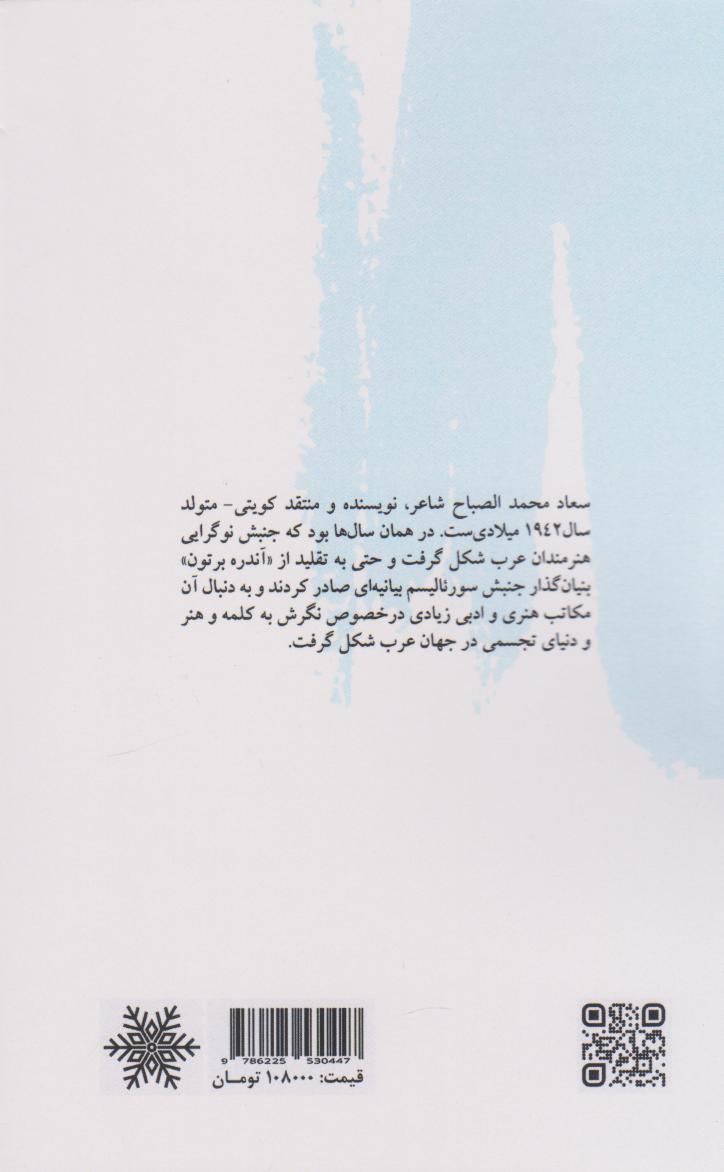 سعاد محمد الصباح شاعر، نویسنده و منتقد کویتی- متولد
سال۱۹۴۲ میلادی‌ست. در همان سال‌ها بود که جنبش نوگرایی
هنرمندان عرب شکل گرفت و حتی به تقلید از «آندره برتون»
بنیان‌گذار جنبش سورئالیسم بیانیه‌ای صادر کردند و به دنبال آن
مکاتب هنری و ادبی زیادی درخصوص نگرش به کلمه و هنر
و دنیای تجسمی در جهان عرب شکل گرفت.
9 786225 530447
قیمت: ۱۰۸۰۰۰ تومـان